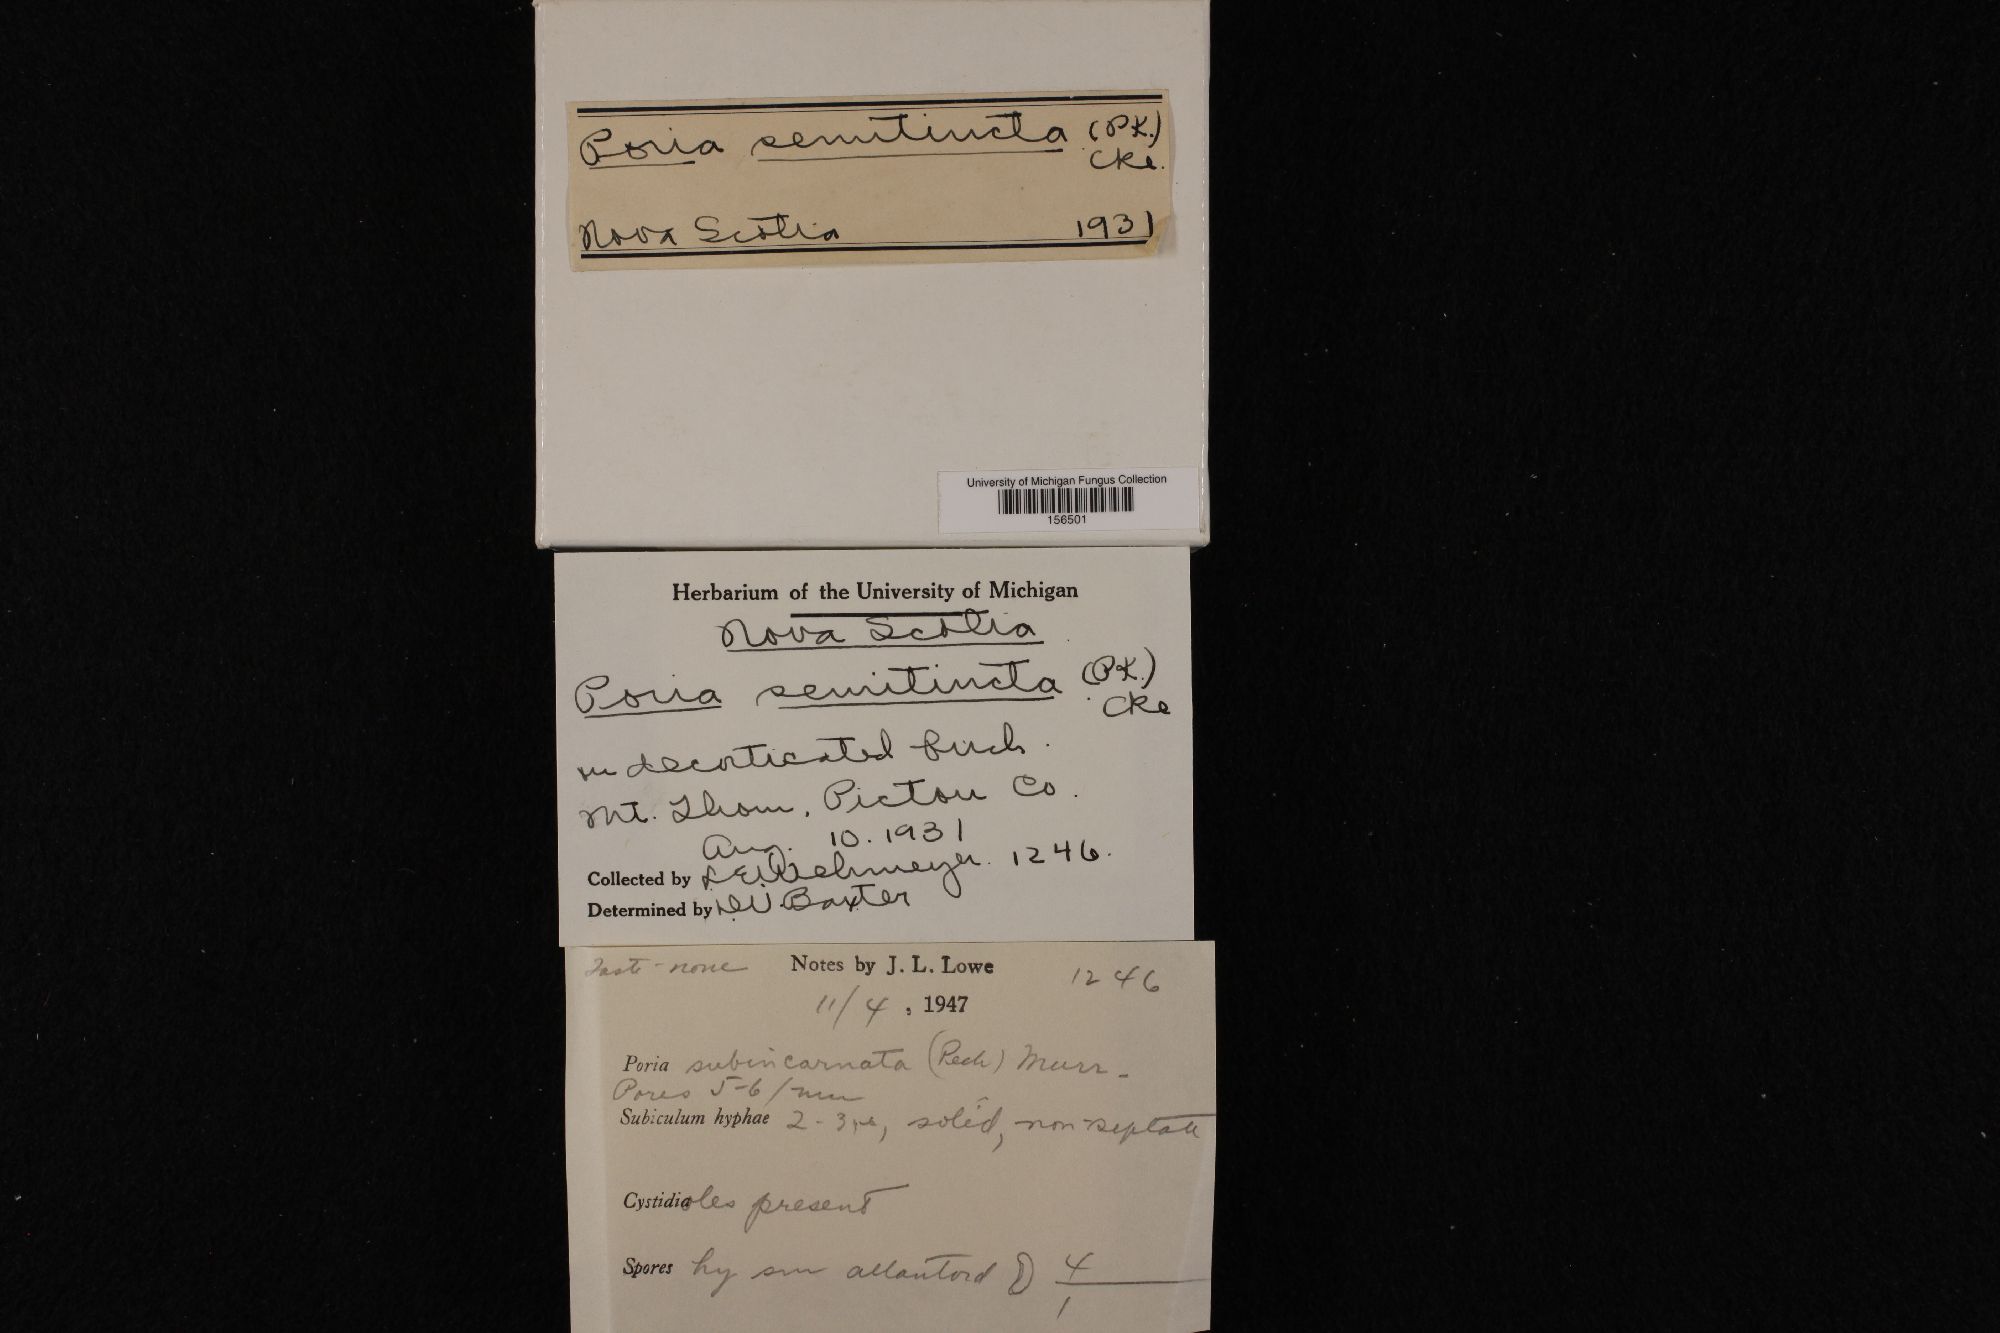 Poria semitincta (Pk.)
Cke.
Nova Scotia 1931
University of Michigan Fungus Collection
156501
Herbarium of the University of Michigan
Nova Scotia
Poria semitincta (Pk.)
Cke
on decorticated birch.
Mt. Thom, Pictou Co.
Aug. 10. 1931
Collected by L E Wehmeyer. 1246.
Determined by D.V. Baxter
Taste - none Notes by J. L. Lowe 1246
11/4, 1947
Poria subincarnata (Peck) Murr.
Pores 5-6/mm
Subiculum hyphae 2-3µ, solid, non-septate
Cystidioles present
Spores hy sm allantoid 4
1